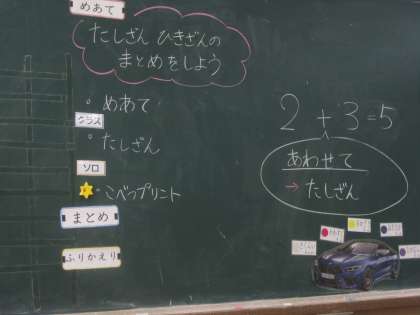 めあて
たしざん ひきざんの
まとめをしよう
・めあて
クラス
・たしざん
ソロ
・こべつプリント
まとめ
ふりかえり
2+3=5
あわせて
→ たしざん